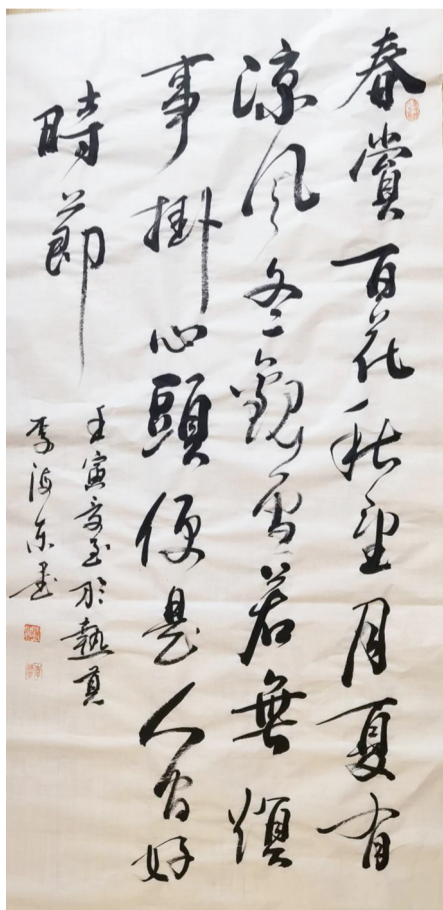 春賞百花秋望月夏有
涼風冬觀雪若無煩
事掛心頭便是人間好
時節
壬寅夏至於
李海东书